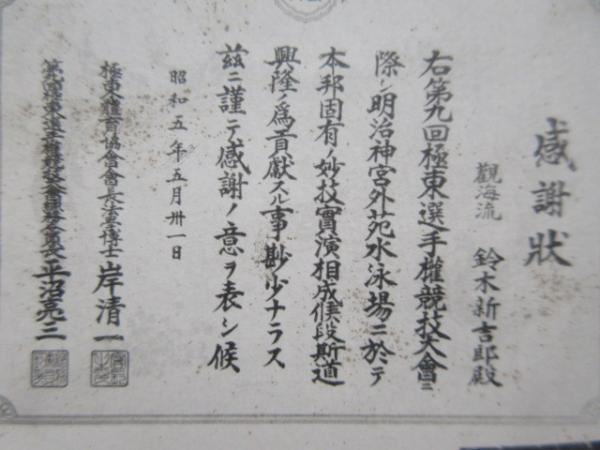 感謝狀
觀海流 鈴木新吉郎殿
右第九回極東選手權競技大會ニ
際シ明治神宮外苑水泳場ニ於テ
本邦固有ノ妙技實演相成候段斯道
興隆ノ爲貢獻スル事尠少ナラス
茲ニ謹テ感謝ノ意ヲ表シ候
昭和五年五月卅一日
極東體育協會會長法學博士 岸清一
平沼亮三